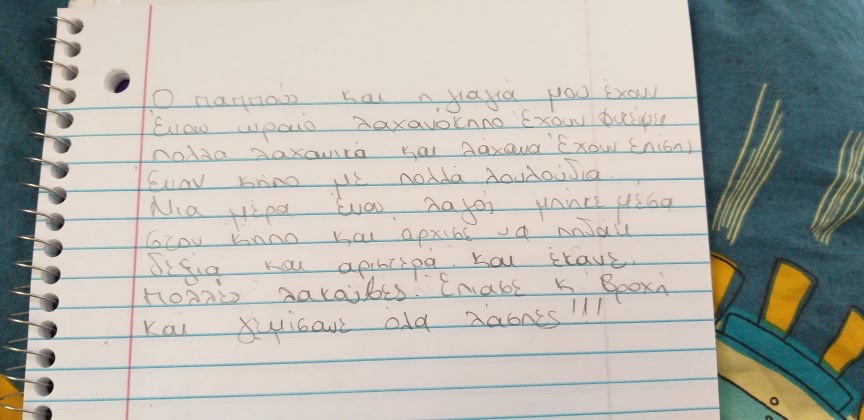 Ο παππούς και η γιαγιά μου έχουν
έναν ωραίο λαχανόκηπο έχουν φυτέψει
πολλά λαχανικά και λάχανα Έχουν επίση
έναν κήπο με πολλά λουλούδια.
Μια μέρα ένας λαγός μπήκε μέσα
στον κήπο και άρχισε να πηδάει
δεξιά και αριστερά και έκανε
πολλές λακούβες. Έπιασε κ βροχή
και γέμισανε όλα λάσπες!!!